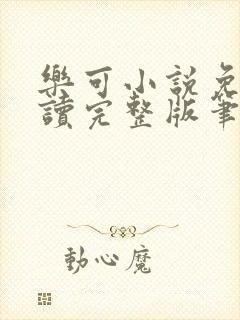 樂可小說免
讀完整版筆
動心魔